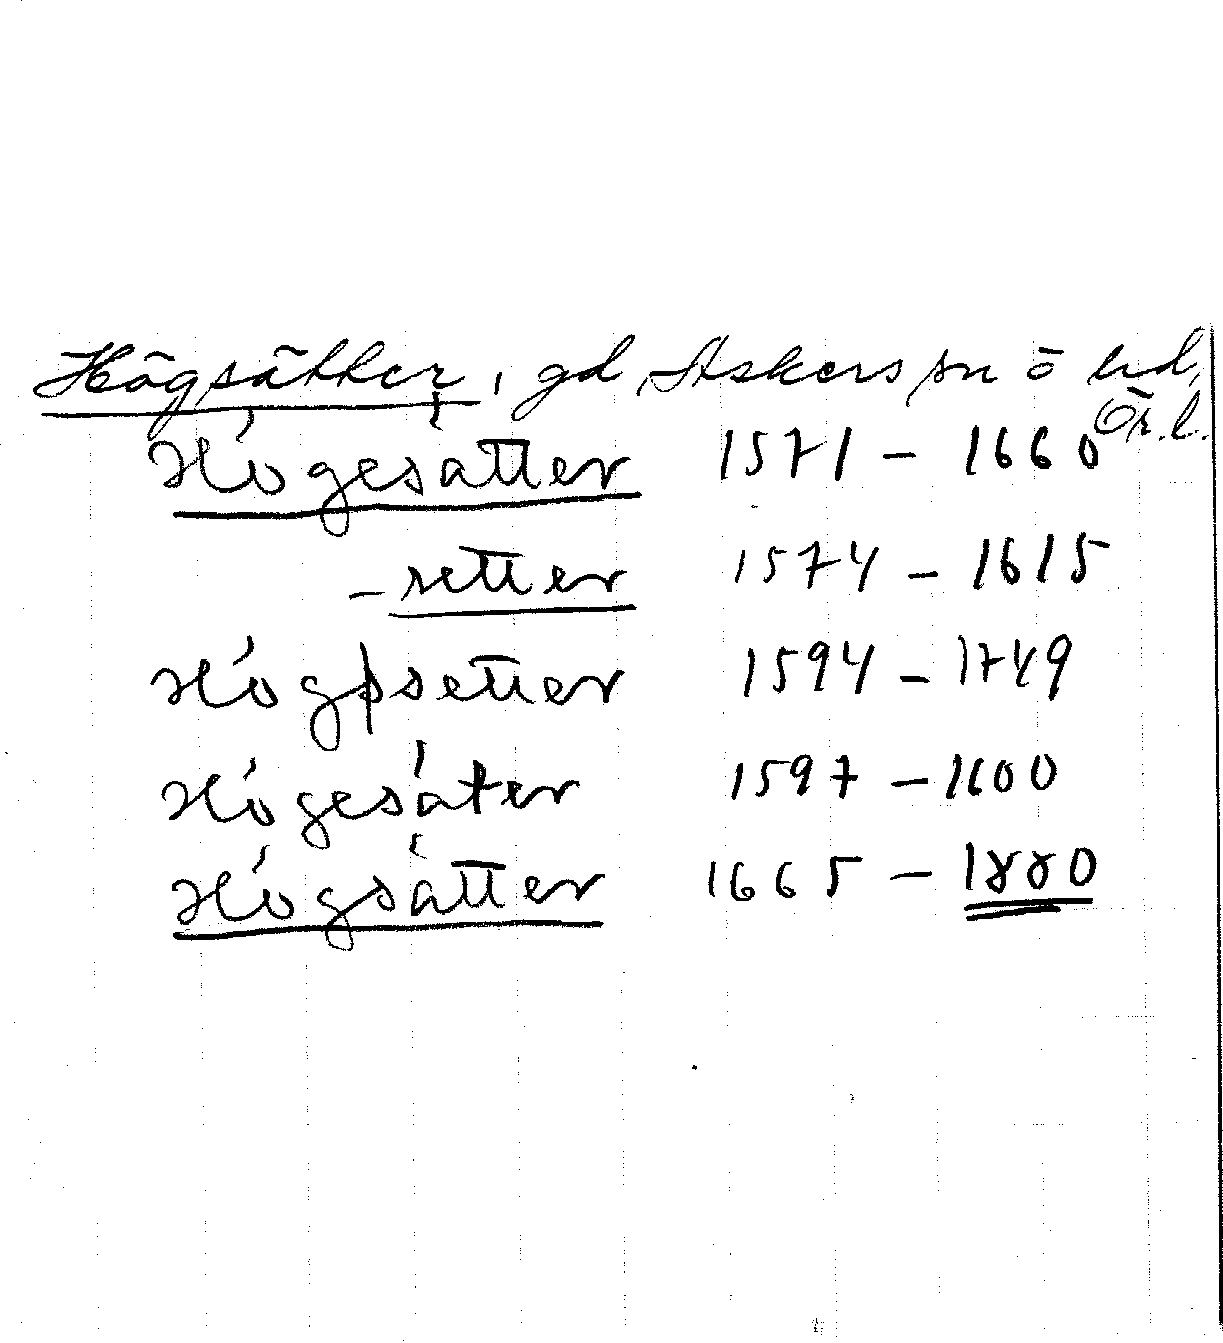 Högsätter, gd, Askers sn ö hd,
Ör.l.
Högesätter 1571 – 1660
– setter 1574 – 1615
Högssetter 1594 – 1749
Högesäter 1597 – 1600
Högsätter 1665 – 1880